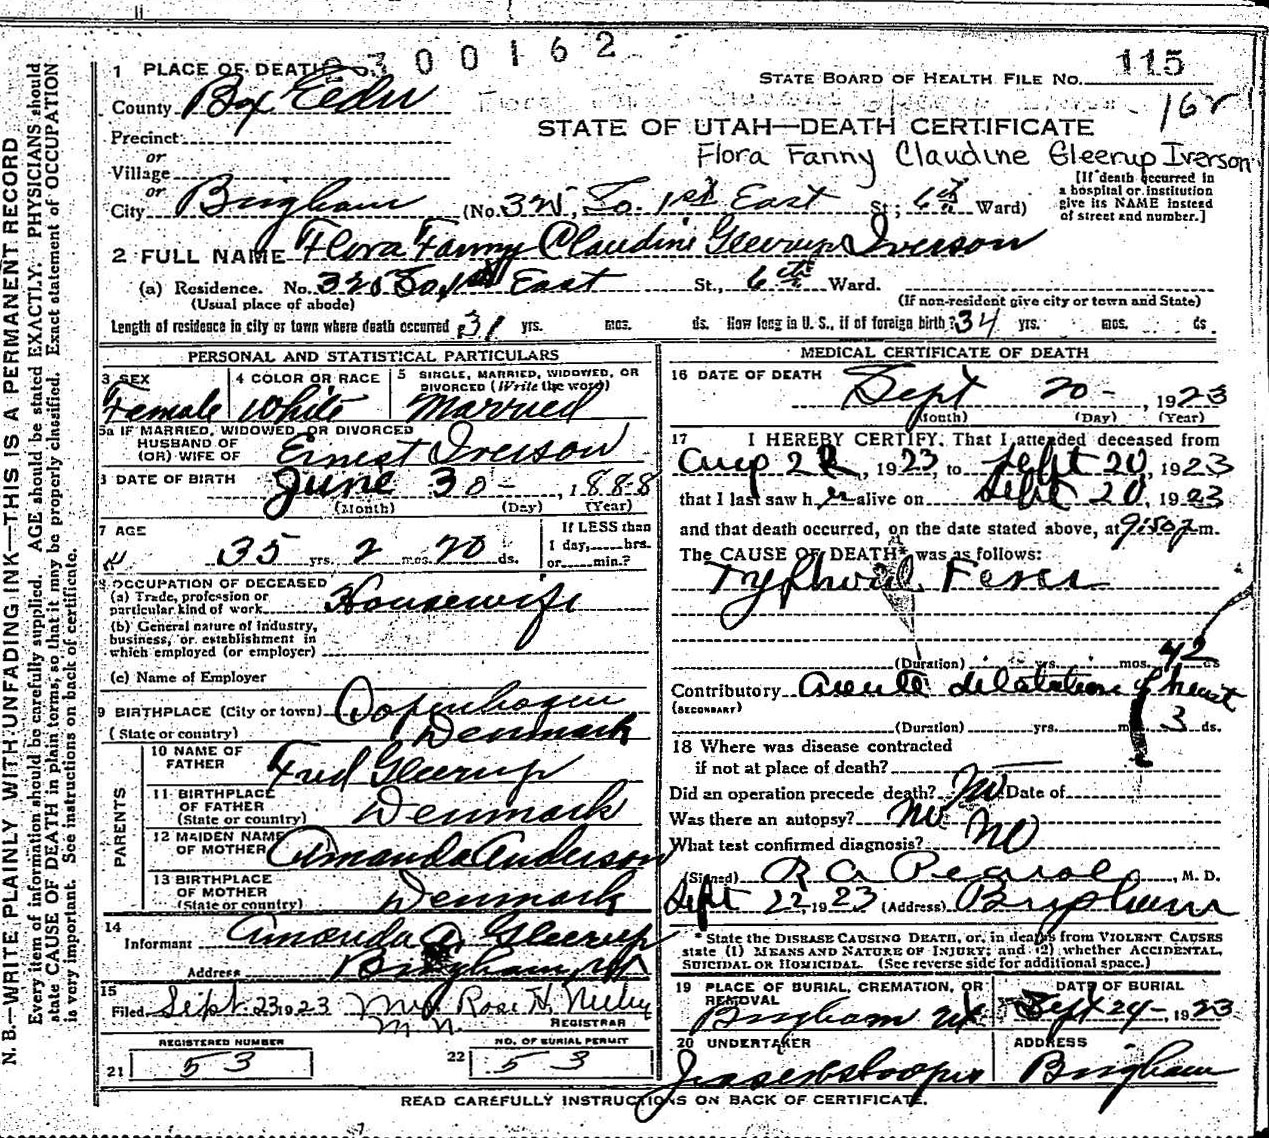 2300162
1 PLACE OF DEATH
STATE BOARD OF HEALTH FILE NO. 115
County Box Elder
162
Precinct
STATE OF UTAH—DEATH CERTIFICATE
or
Village
Flora Fanny Claudine Gleerup Iverson
or
City Brigham (No. 325 So. 1st East St; 6th Ward)
[If death occurred in a hospital or institution give its NAME instead of street and number.]
2 FULL NAME Flora Fanny Claudine Gleerup Iverson
(a) Residence. No. 325 So. 1st East St., 6th Ward.
(Usual place of abode) (If non-resident give city or town and State)
Length of residence in city or town where death occurred 31 yrs. mos. ds. How long in U. S., if of foreign birth? 34 yrs. mos. ds
PERSONAL AND STATISTICAL PARTICULARS
3 SEX Female
4 COLOR OR RACE White
5 SINGLE, MARRIED, WIDOWED, OR DIVORCED (Write the word) Married
5a IF MARRIED, WIDOWED, OR DIVORCED
HUSBAND OF
(OR) WIFE OF Ernest Iverson
6 DATE OF BIRTH June 30-, 1888
(Month) (Day) (Year)
7 AGE 35 yrs. 2 mos. 20 ds.
If LESS than
1 day, hrs.
or min.?
8 OCCUPATION OF DECEASED
(a) Trade, profession or
particular kind of work Housewife
(b) General nature of industry,
business, or establishment in
which employed (or employer)
(c) Name of Employer
9 BIRTHPLACE (City or town) Copenhagen
(State or country) Denmark
PARENTS
10 NAME OF
FATHER Fred Gleerup
11 BIRTHPLACE
OF FATHER
(State or country) Denmark
12 MAIDEN NAME
OF MOTHER Amanda Anderson
13 BIRTHPLACE
OF MOTHER
(State or country) Denmark
14
Informant Amanda A. Gleerup
Address Brigham, Ut
15
Filed Sept. 23 1923 Mrs Rose H.
REGISTRAR
REGISTERED NUMBER
21 53
NO. OF BURIAL PERMIT
22 53
MEDICAL CERTIFICATE OF DEATH
16 DATE OF DEATH Sept 20-, 1923
(Month) (Day) (Year)
17 I HEREBY CERTIFY, That I attended deceased from
Aug 22, 1923, to Sept 20, 1923
that I last saw her alive on Sept 20, 1923
and that death occurred, on the date stated above, at 9:50 p m.
The CAUSE OF DEATH* was as follows:
Typhoid Fever
(Duration) yrs. mos. 42 ds
Contributory Acute dilatation of heart
(SECONDARY)
(Duration) yrs. mos. 3 ds.
18 Where was disease contracted
if not at place of death?
Did an operation precede death? No Date of
Was there an autopsy? No
What test confirmed diagnosis? No
(Signed) R A Pearse, M. D.
Sept 22, 1923 (Address) Brigham
* State the DISEASE CAUSING DEATH, or, in deaths from VIOLENT CAUSES
state (1) MEANS AND NATURE OF INJURY; and (2) whether ACCIDENTAL,
SUICIDAL OR HOMICIDAL. (See reverse side for additional space.)
19 PLACE OF BURIAL, CREMATION, OR
REMOVAL
Brigham Ut
DATE OF BURIAL
Sept 24-, 1923
20 UNDERTAKER
ADDRESS
Brigham
READ CAREFULLY INSTRUCTIONS ON BACK OF CERTIFICATE.
N. B.—WRITE PLAINLY WITH UNFADING INK—THIS IS A PERMANENT RECORD
Every item of information should be carefully supplied. AGE should be stated EXACTLY. PHYSICIANS should
state CAUSE OF DEATH in plain terms, so that it may be properly classified. Exact statement of OCCUPATION
is very important. See instructions on back of certificate.